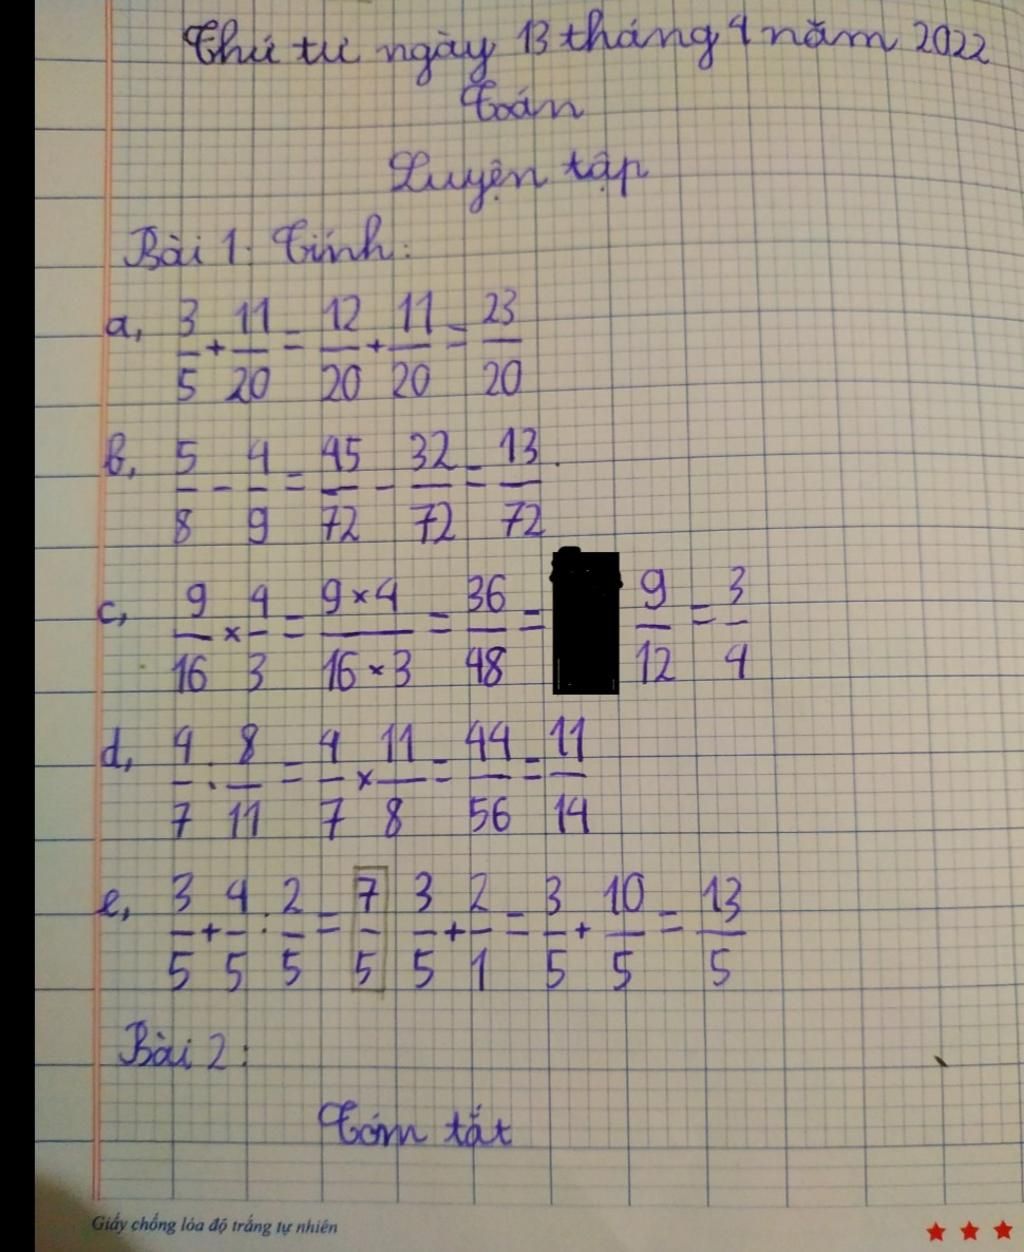 Thứ tư ngày 13 tháng 4 năm 2022
Toán
Luyện tập
Bài 1: Tính:
a, 3/5 + 11/20 = 12/20 + 11/20 = 23/20
b, 5/8 - 4/9 = 45/72 - 32/72 = 13/72
c, 9/16 × 4/3 = 9×4/16×3 = 36/48 = 9/12 = 3/4
d, 4/7 : 8/11 = 4/7 × 11/8 = 44/56 = 11/14
e, 3/5 + 4/5 : 2/5 = 7/5 3/5 + 2/1 = 3/5 + 10/5 = 13/5
Bài 2:
Tóm tắt
Giấy chống lóa độ trắng tự nhiên